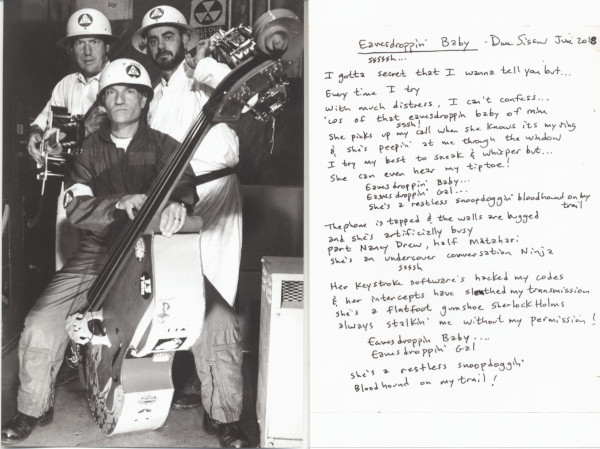 FALLOUT
Eavesdroppin' Baby - Dave Sisson June 2018
sssssh...
I gotta secret that I wanna tell you but...
Every time I try
With much distress, I can't confess...
'cos of that eavesdroppin baby of mine
sssh!
She pinks up my call when she knows its my ring
& she's peepin' at me though the window
I try my best to sneak & whisper but...
She can even hear my tiptoe!
Eavesdroppin' Baby...
Eavesdroppin' Gal...
She's a restless snoopdoggin' bloodhound on my
trail
The phone is tapped & the walls are bugged
and she's artificially busy
part Nancy Drew, half Matahari
she's an undercover conversation Ninja
ssssh
Her Keystroke software's hacked my codes
& her intercepts have sleuthed my transmission
she's a flatfoot gumshoe Sherlock Holms
always stalkin' me without my permission!
Eavesdroppin Baby....
Eavesdroppin' Gal
she's a restless snoopdoggin'
Bloodhound on my trail!